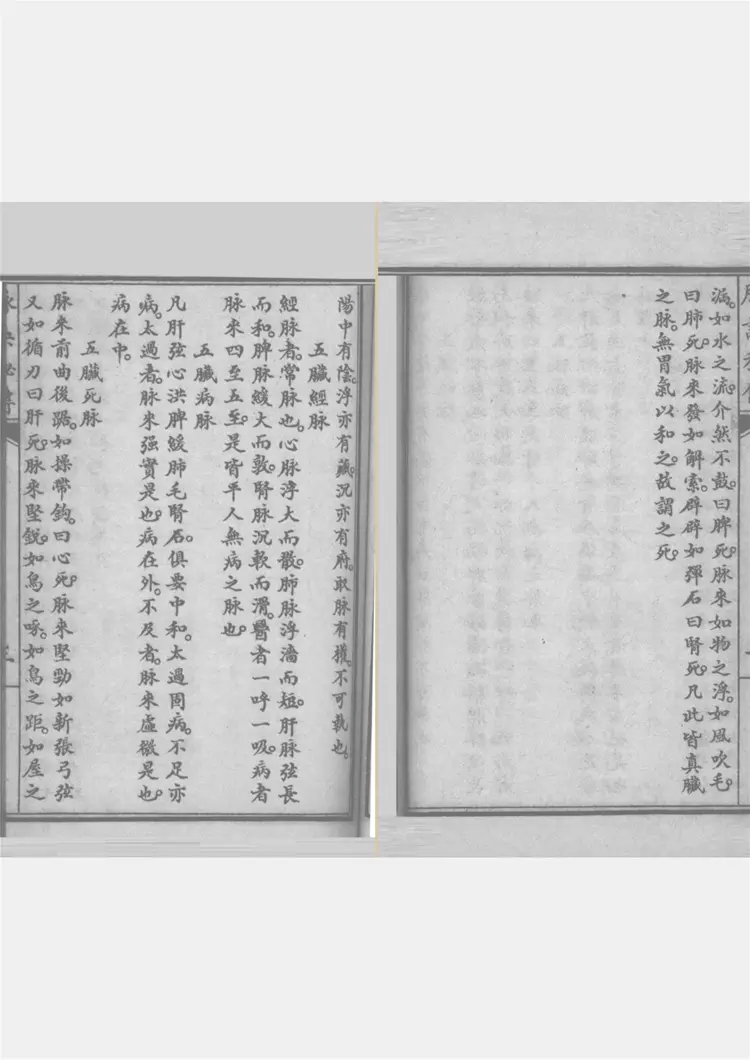 陽中有陰。浮亦有臟。沉亦有府。取脉有權。不可執也。
五臟經脉
經脉者。常脉也。心脉浮大而散。肺脉浮濇而短。肝脉弦長
而和。脾脉緩大而敦。腎脉沉軟而滑。醫者一呼一吸。病者
脉來四至五至。是皆平人無病之脉也。
五臟病脉
凡肝弦心洪脾緩肺毛腎石。俱要中和。太過固病。不足亦
病。太過者。脉來强實是也。病在外。不及者。脉來虛微是也。
病在中。
五臟死脉
脉來前曲後踞。如操帶鈎。曰心死。脉來堅勁如新張弓弦
又如循刃曰肝死。脉來堅銳。如烏之喙。如鳥之距。如屋之
漏。如水之流。介然不鼓。曰脾死。脉來如物之浮。如風吹毛
曰肺死。脉來發如解索。辟辟如彈石曰腎死。凡此皆真臟
之脉。無胃氣以和之。故謂之死。